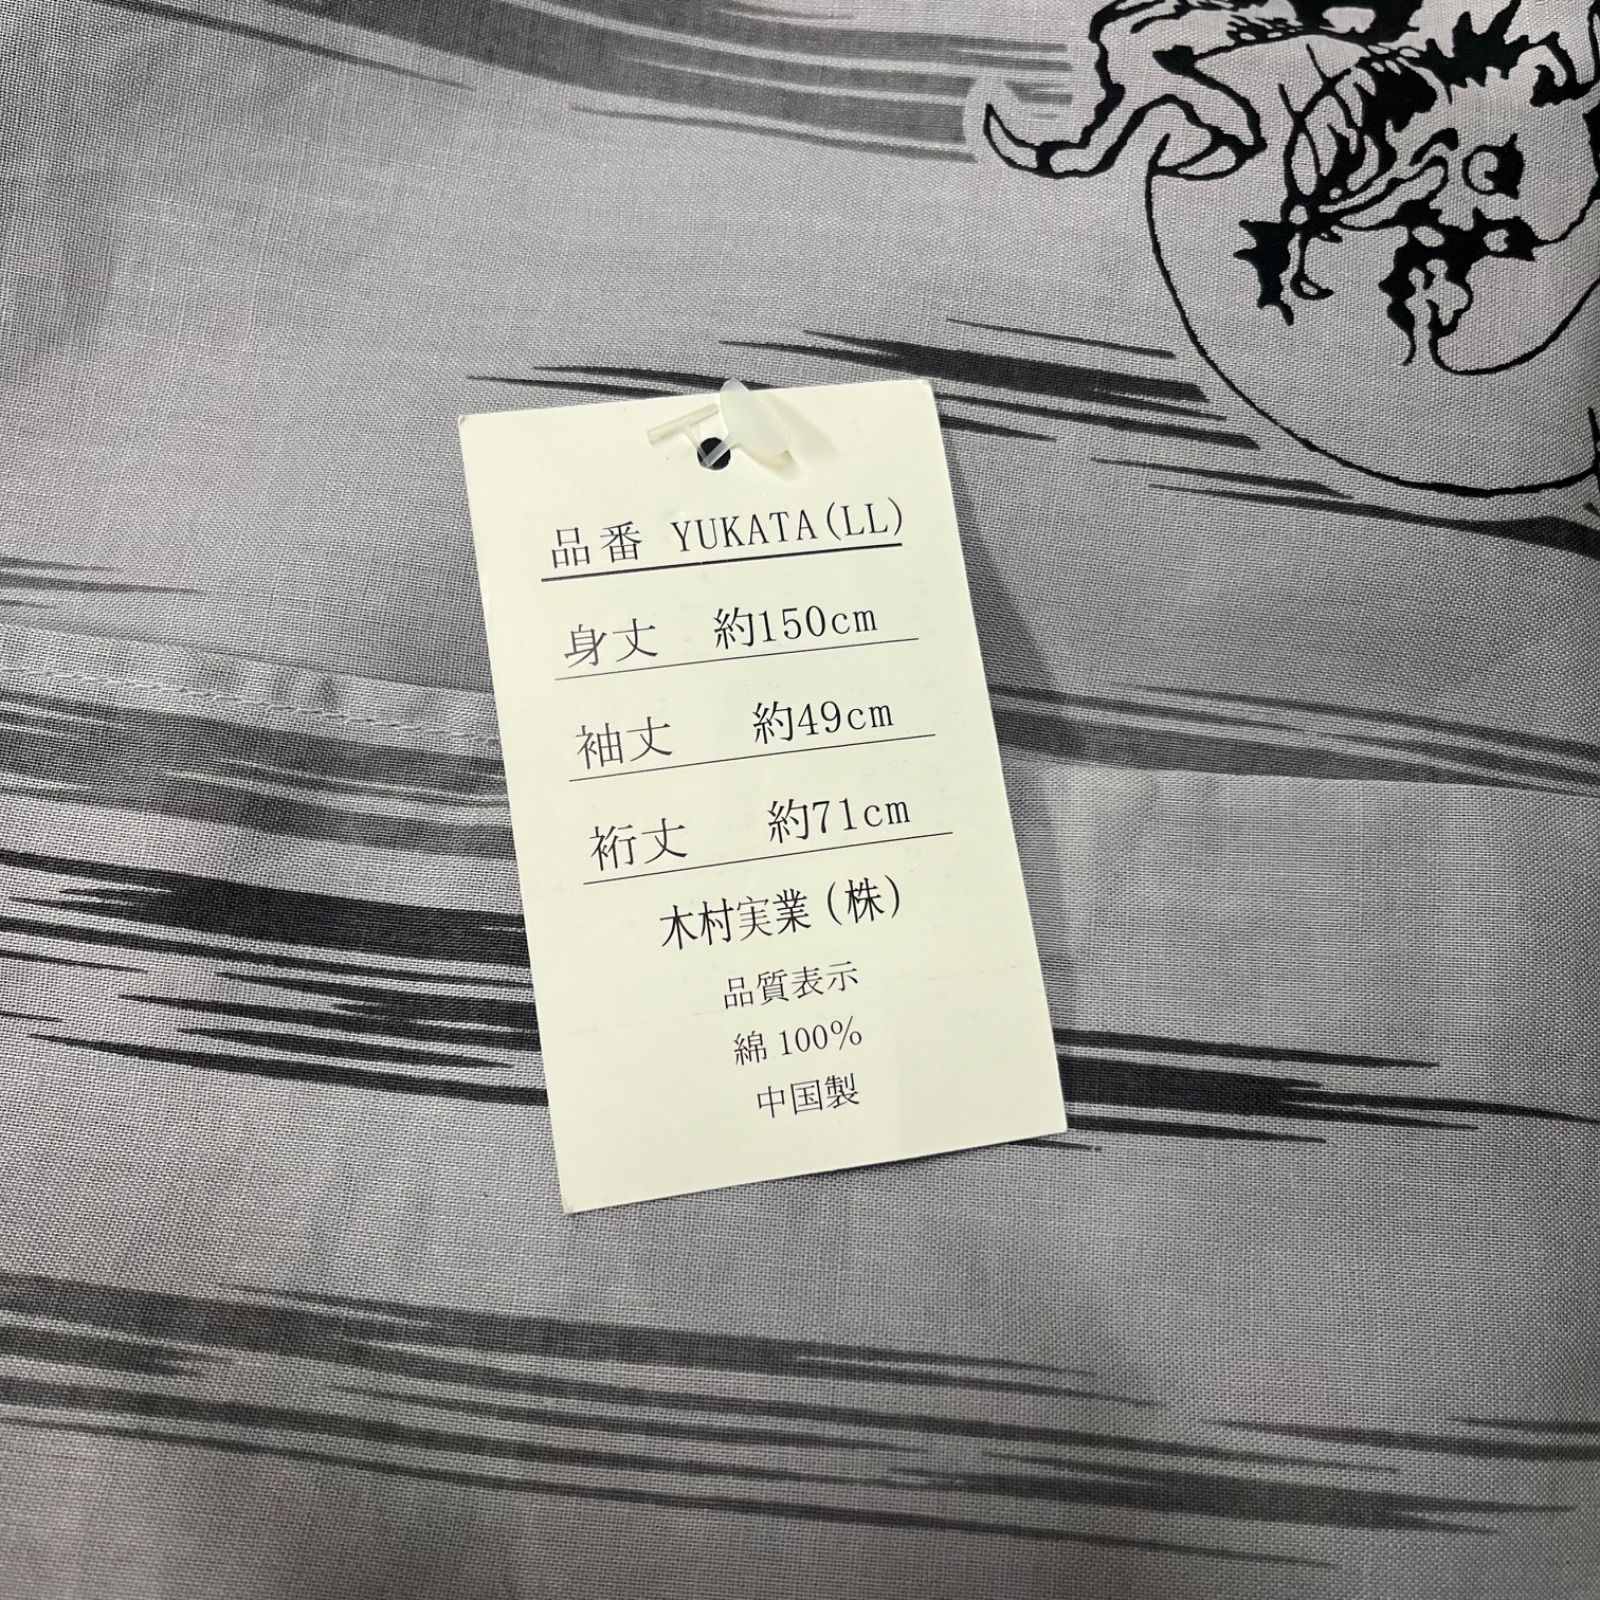 品番 YUKATA(LL)
身丈 約150cm
袖丈 約49cm
裄丈 約71cm
木村実業(株)
品質表示
綿100%
中国製